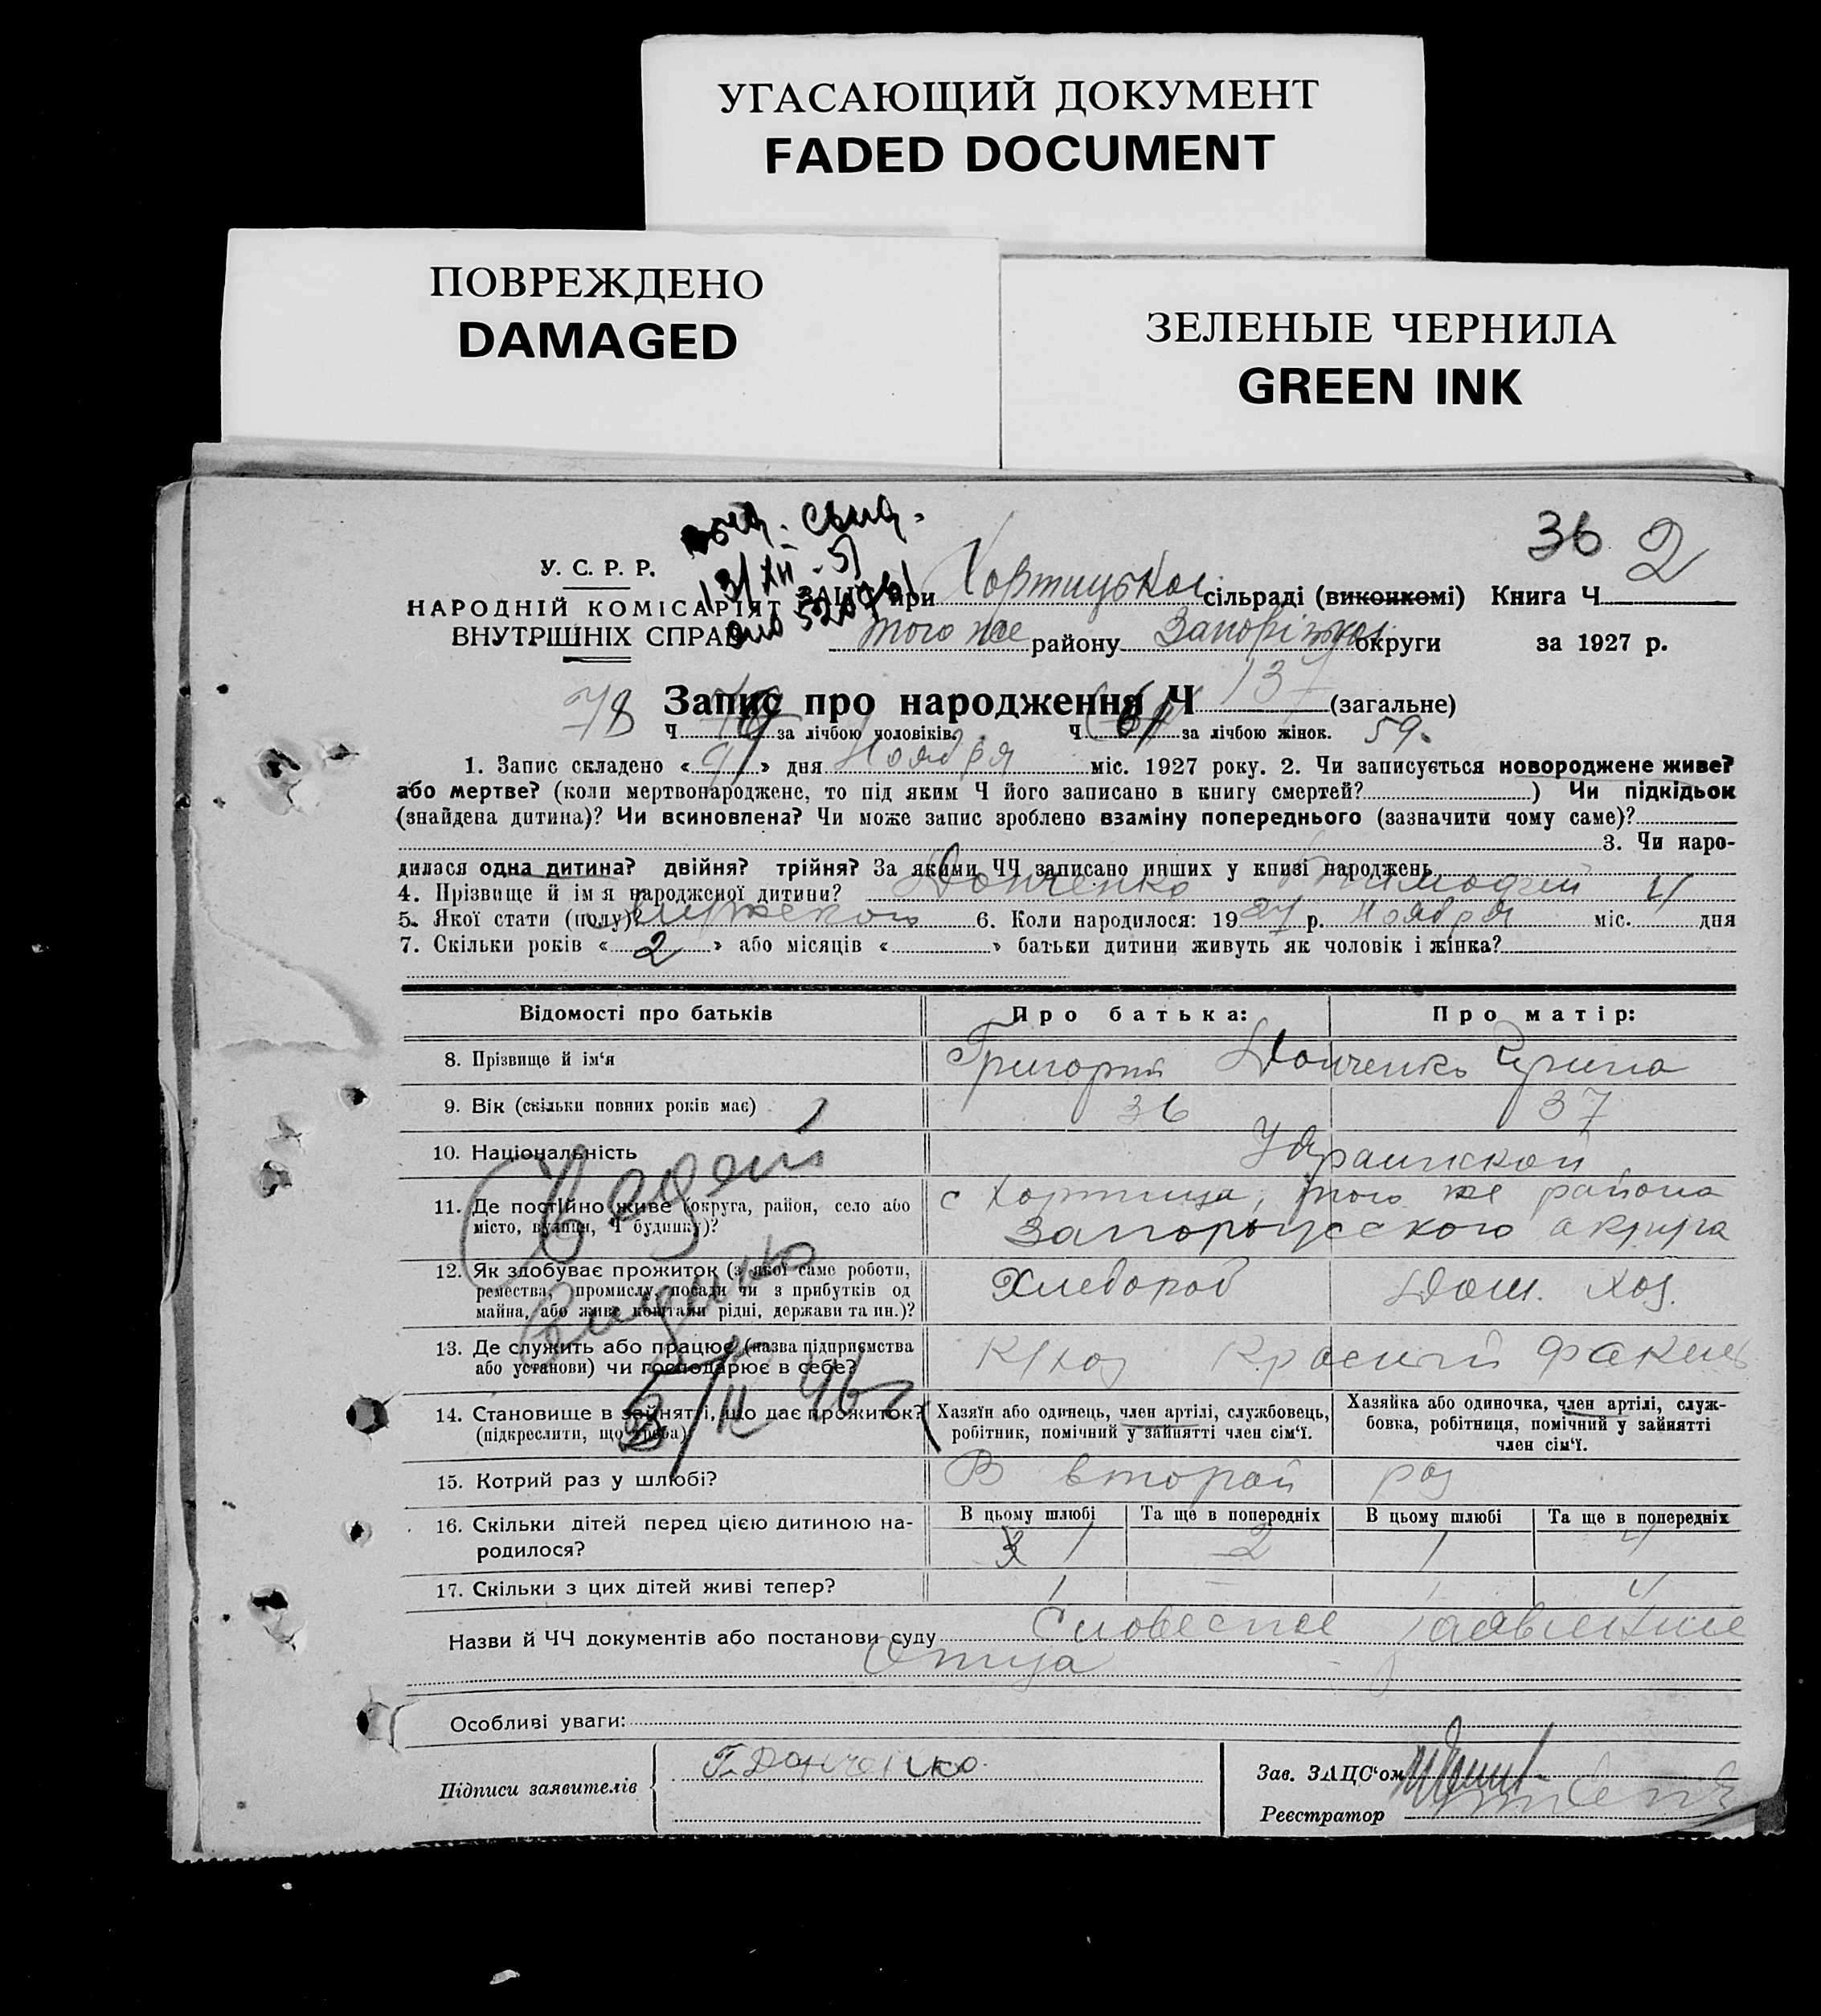 УГАСАЮЩИЙ ДОКУМЕНТ
FADED DOCUMENT
ПОВРЕЖДЕНО
DAMAGED
ЗЕЛЕНЫЕ ЧЕРНИЛА
GREEN INK
36 2
У. С. Р. Р.
НАРОДНІЙ КОМІСАРІЯТ
ВНУТРІШНІХ СПРАВ
13/XII-51
ЗАЦС при Хортицької сільраді (виконкомі) Книга Ч
того же району Запорізької округи за 1927 р.
78 Запис про народження Ч 137 (загальне)
Ч за лічбою чоловіків. Ч 61 за лічбою жінок. 59.
1. Запис складено «9» дня Ноября міс. 1927 року. 2. Чи записується новороджене живе?
або мертве? (коли мертвонароджене, то під яким Ч його записано в книгу смертей? ) Чи підкідьок
(знайдена дитина)? Чи всиновлена? Чи може запис зроблено взаміну попереднього (зазначити чому саме)?
3. Чи наро-
дилася одна дитина? двійня? трійня? За якими ЧЧ записано инших у книзі народжень
4. Прізвище й ім'я народженої дитини? Донченко Тимофей 4
5. Якої стати (полу)? Мужского 6. Коли народилося: 1927 р. Ноября міс. дня
7. Скільки років «2» або місяців « » батьки дитини живуть як чоловік і жінка?
Відомості про батьків Про батька: Про матір:
8. Прізвище й ім'я Григорий Донченко Ирина
9. Вік (скільки повних років має) 36 37
10. Національність Украинской
11. Де постійно живе (округа, район, село або с Хортица, того же района
місто, вулиця, Ч будинку)? Запорожского округа
12. Як здобуває прожиток (з якої саме роботи, Хлебороб Дом. хоз.
ремества, промислу, посади чи з прибутків од
майна, або живе коштами рідні, держави та ин.)?
13. Де служить або працює (назва підприємства К/хоз Красный факел
або установи) чи господарює в себе?
14. Становище в зайнятті, що дає прожиток? Хазяїн або одинець, член артілі, службовець, Хазяйка або одиночка, член артілі, служ-
(підкреслити, що треба) робітник, помічний у зайнятті член сім'ї. бовка, робітниця, помічний у зайнятті
член сім'ї.
15. Котрий раз у шлюбі? В второй раз
16. Скільки дітей перед цією дитиною на- В цьому шлюбі Та ще в попередніх В цьому шлюбі Та ще в попередніх
родилося? 1 2 1 4
17. Скільки з цих дітей живі тепер? 1 — 1 4
Назви й ЧЧ документів або постанови суду Словесное заявление
Отца
Особливі уваги:
Підписи заявителів Г. Донченко
Зав. ЗАЦС'ом
Реєстратор